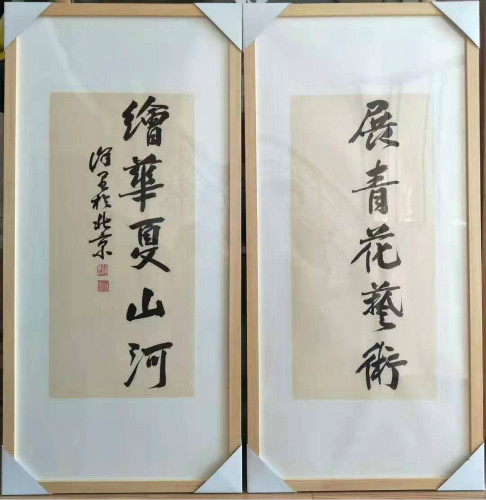 展青花藝術
繪華夏山河
於北京